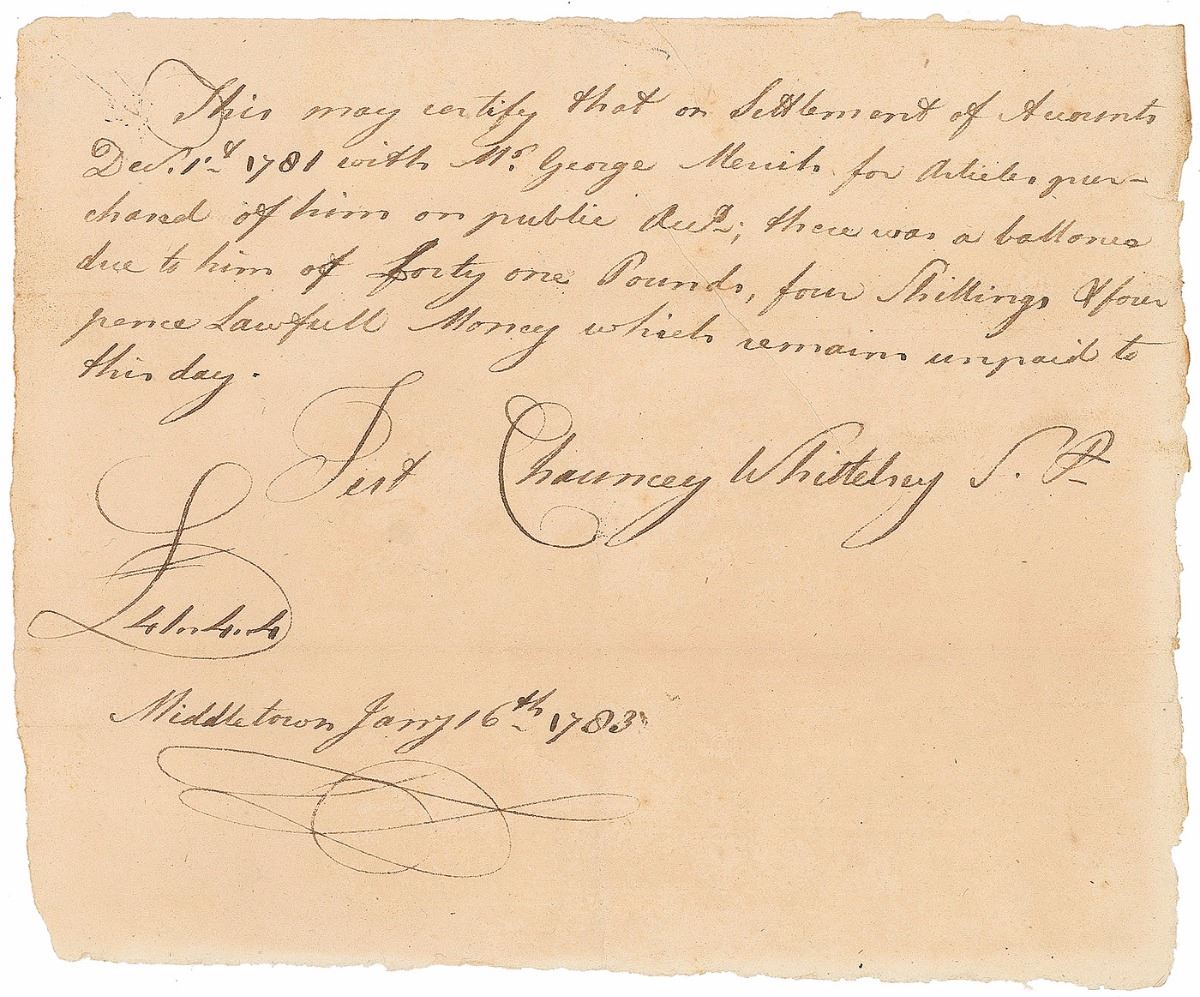 This may certify that on Settlement of Accounts
Decr. 1st 1781 with Mr. George Merich for Articles pur-
chased of him on public Acct.; there was a ballance
due to him of forty one Pounds, four Shillings & four
pence Lawfull Money which remains unpaid to
this day.
Test Chauncey Whittelsey S. P.
£41..4..4
Middletown Janry 16th 1783